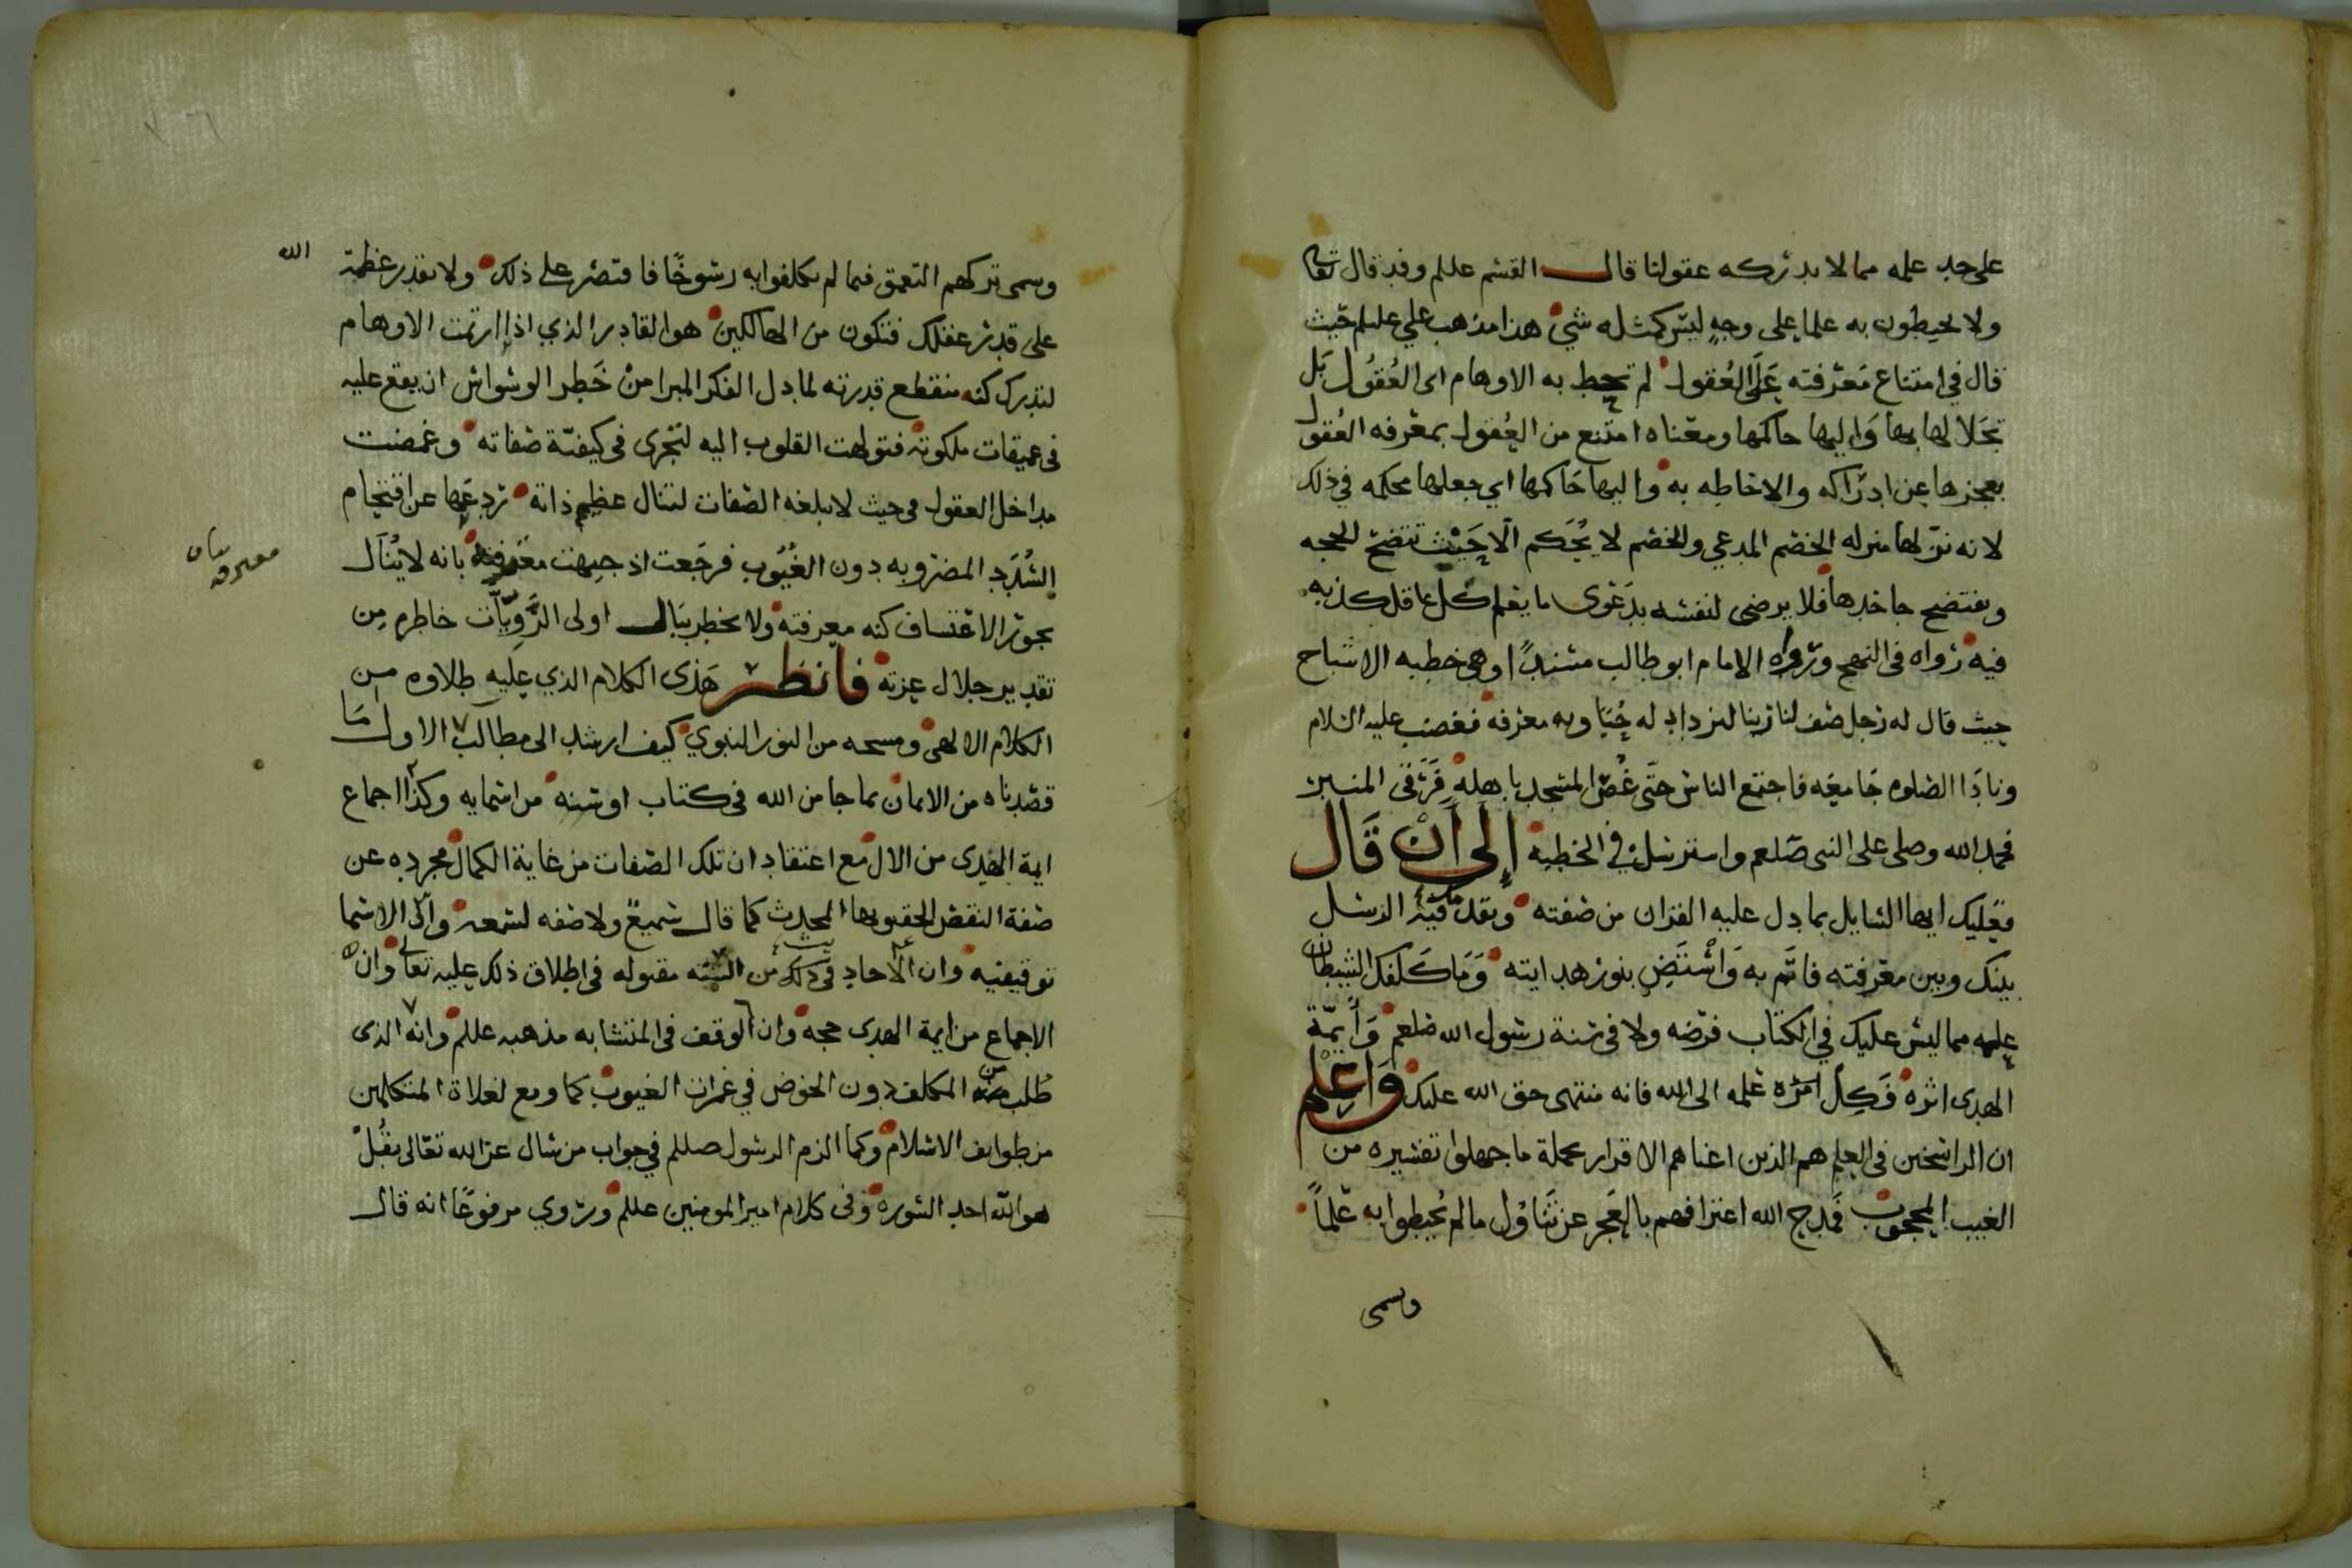 على حد علمه مما لا تدركه عقولنا قال القسم علىلم وقد قال تعالى
ولا يحيطون به علما على وجه ليس كمثله شيء هذا مذهب علي علىلم حيث
قال في امتناع معرفته على العقول لم تحط به الاوهام اى العقول بل
تجلا لها بها واليها حاكمها ومعناه امتنع من العقول بمعرفه العقول
بعجزها عن ادراكه والاحاطه به واليها حاكمها اي جعلها محكمه في ذلك
لانه نزلها منزله الخصم المدعي والخصم لا يحكم الا حيث تتضح الحجه
ويفتضح جاحدها فلا يرضى لنفسه بدعوى ما يعلم كل عاقل كذبه
فيه رواه في النهج ورواه الامام ابو طالب مسندا وهى خطبه الاشباح
حيث قال له رجل صف لنا ربنا لنزداد له حبا وبه معرفه فغضب عليه السلام
ونادا الصلوه جامعه فاجتمع الناس حتى غص المسجد باهله فرقى المنبر
فحمد الله وصلى على النبى صلعم واسترسل في الخطبه إلى أن قال
فعليك ايها السايل بما دل عليه القران من صفته وتقدمك فيه الرسل
بينك وبين معرفته فاتم به واستضئ بنور هدايته وما كلفك الشيطان
علمه مما ليس عليك في الكتاب فرضه ولا فى سنة رسول الله صلعم وأيمة
الهدى اثره فكل امره علمه الى الله فانه منتهى حق الله عليك واعلم
ان الراسخين فى العلم هم الذين اغناهم الاقرار بجملة ما جهلوا تفسيره من
الغيب المحجوب فمدح الله اعترافهم بالعجز عن تناول ما لم يحيطوا به علما
وسمى
وسمى تركهم التعمق فيما لم يكلفوا به رسوخا فاقتصر على ذلك ولا تقدر عظمة الله
على قدر عقلك فتكون من الهالكين هو القادر الذي اذا ارتمت الاوهام
لتدرك كنه منقطع قدرته لما دل الفكر المبرا من خطر الوسواس ان يقع عليه
فى عميقات ملكوته فتولهت القلوب اليه لتجرى فى كيفية صفاته وغمضت
مداخل العقول في حيث لا تبلغه الصفات لتنال عظيم ذاته ردعها عن اقتحام
السدد المضروبه دون الغيوب فرجعت اذ جبهت معترفه بانه لا ينال
بجور الاعتساف كنه معرفته ولا يخطر ببال اولى الرويات خاطره من
تقدير جلال عزته فانظر هذى الكلام الذي عليه طلاوه من
الكلام الالهى ومسحه من النور النبوي كيف ارشد الى مطالب الاول ما
قصدناه من الايمان بما جا من الله فى كتاب او سنه من اسمايه وكذا اجماع
ايمة الهدى من الال مع اعتقاد ان تلك الصفات من غاية الكمال مجرده عن
صفة النقص المحقوبها المحدث كما قال سميع ولا صفه لسمعه وان الاسما
توقيفيه وان الاحاد فى ذلك من السنه مقبوله فى اطلاق ذلك عليه تعالى وان
الاجماع من ايمة الهدى حجه وان الوقف فى المتشابه مذهبه علىلم وانه الذى
طلب من المكلف دون الخوض في غمرات الغيوب كما وقع لغلاة المتكلمين
من طوايف الاسلام وكما الزم الرسول صللم في جواب من سال عن الله تعالى بقل
هو الله احد السوره وفى كلام امير المومنين علىلم وروي مرفوعا انه قال